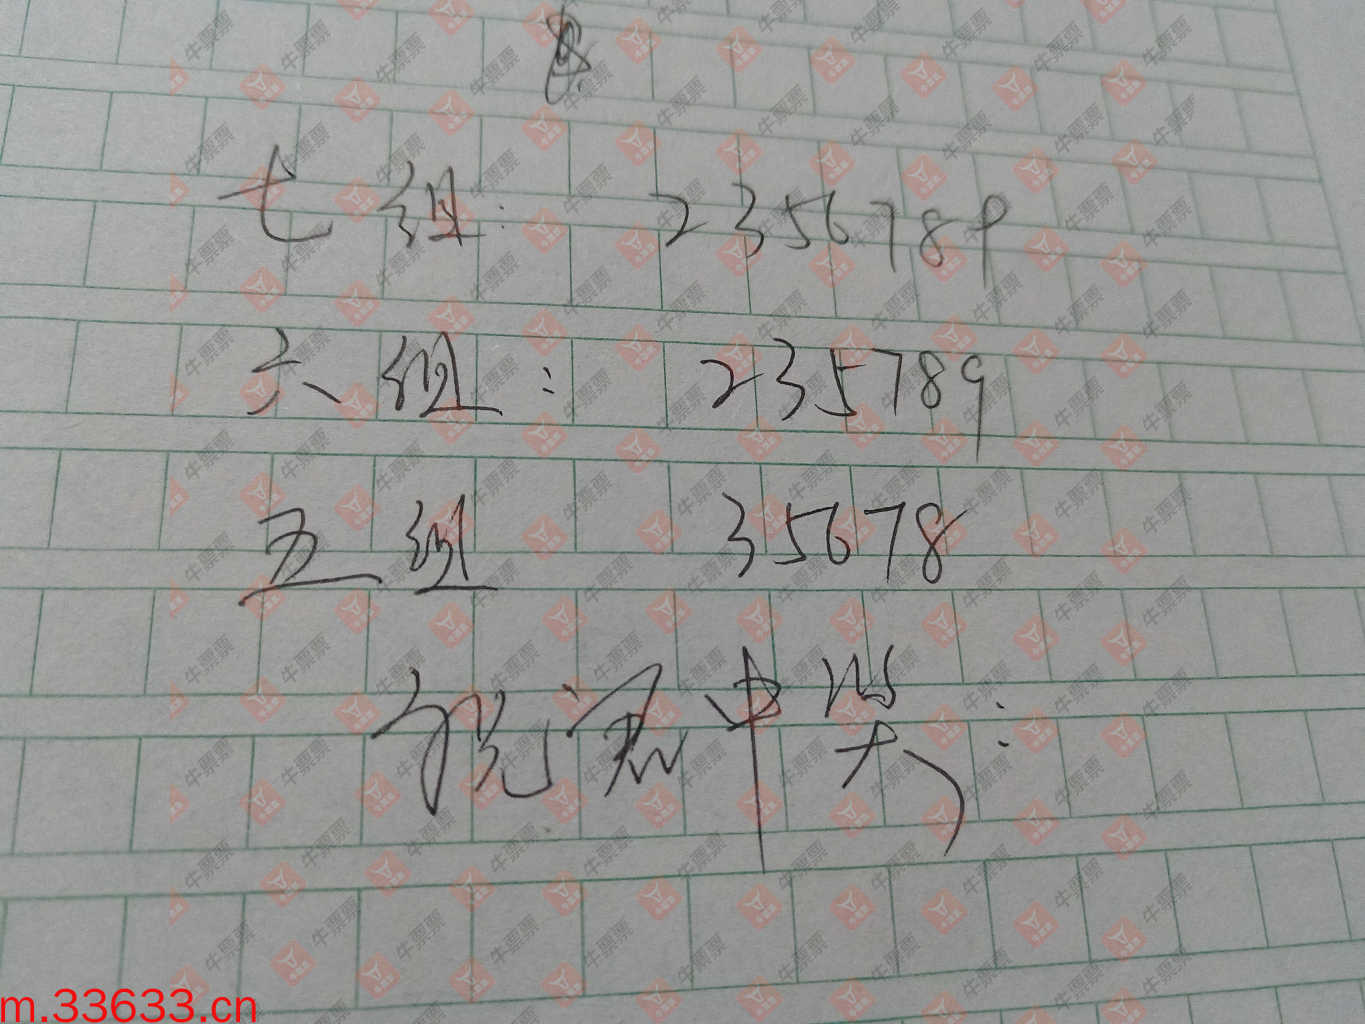 七组: 2356789
六组: 235789
五组 35678
祝君中奖:
牛票票
m.33633.cn